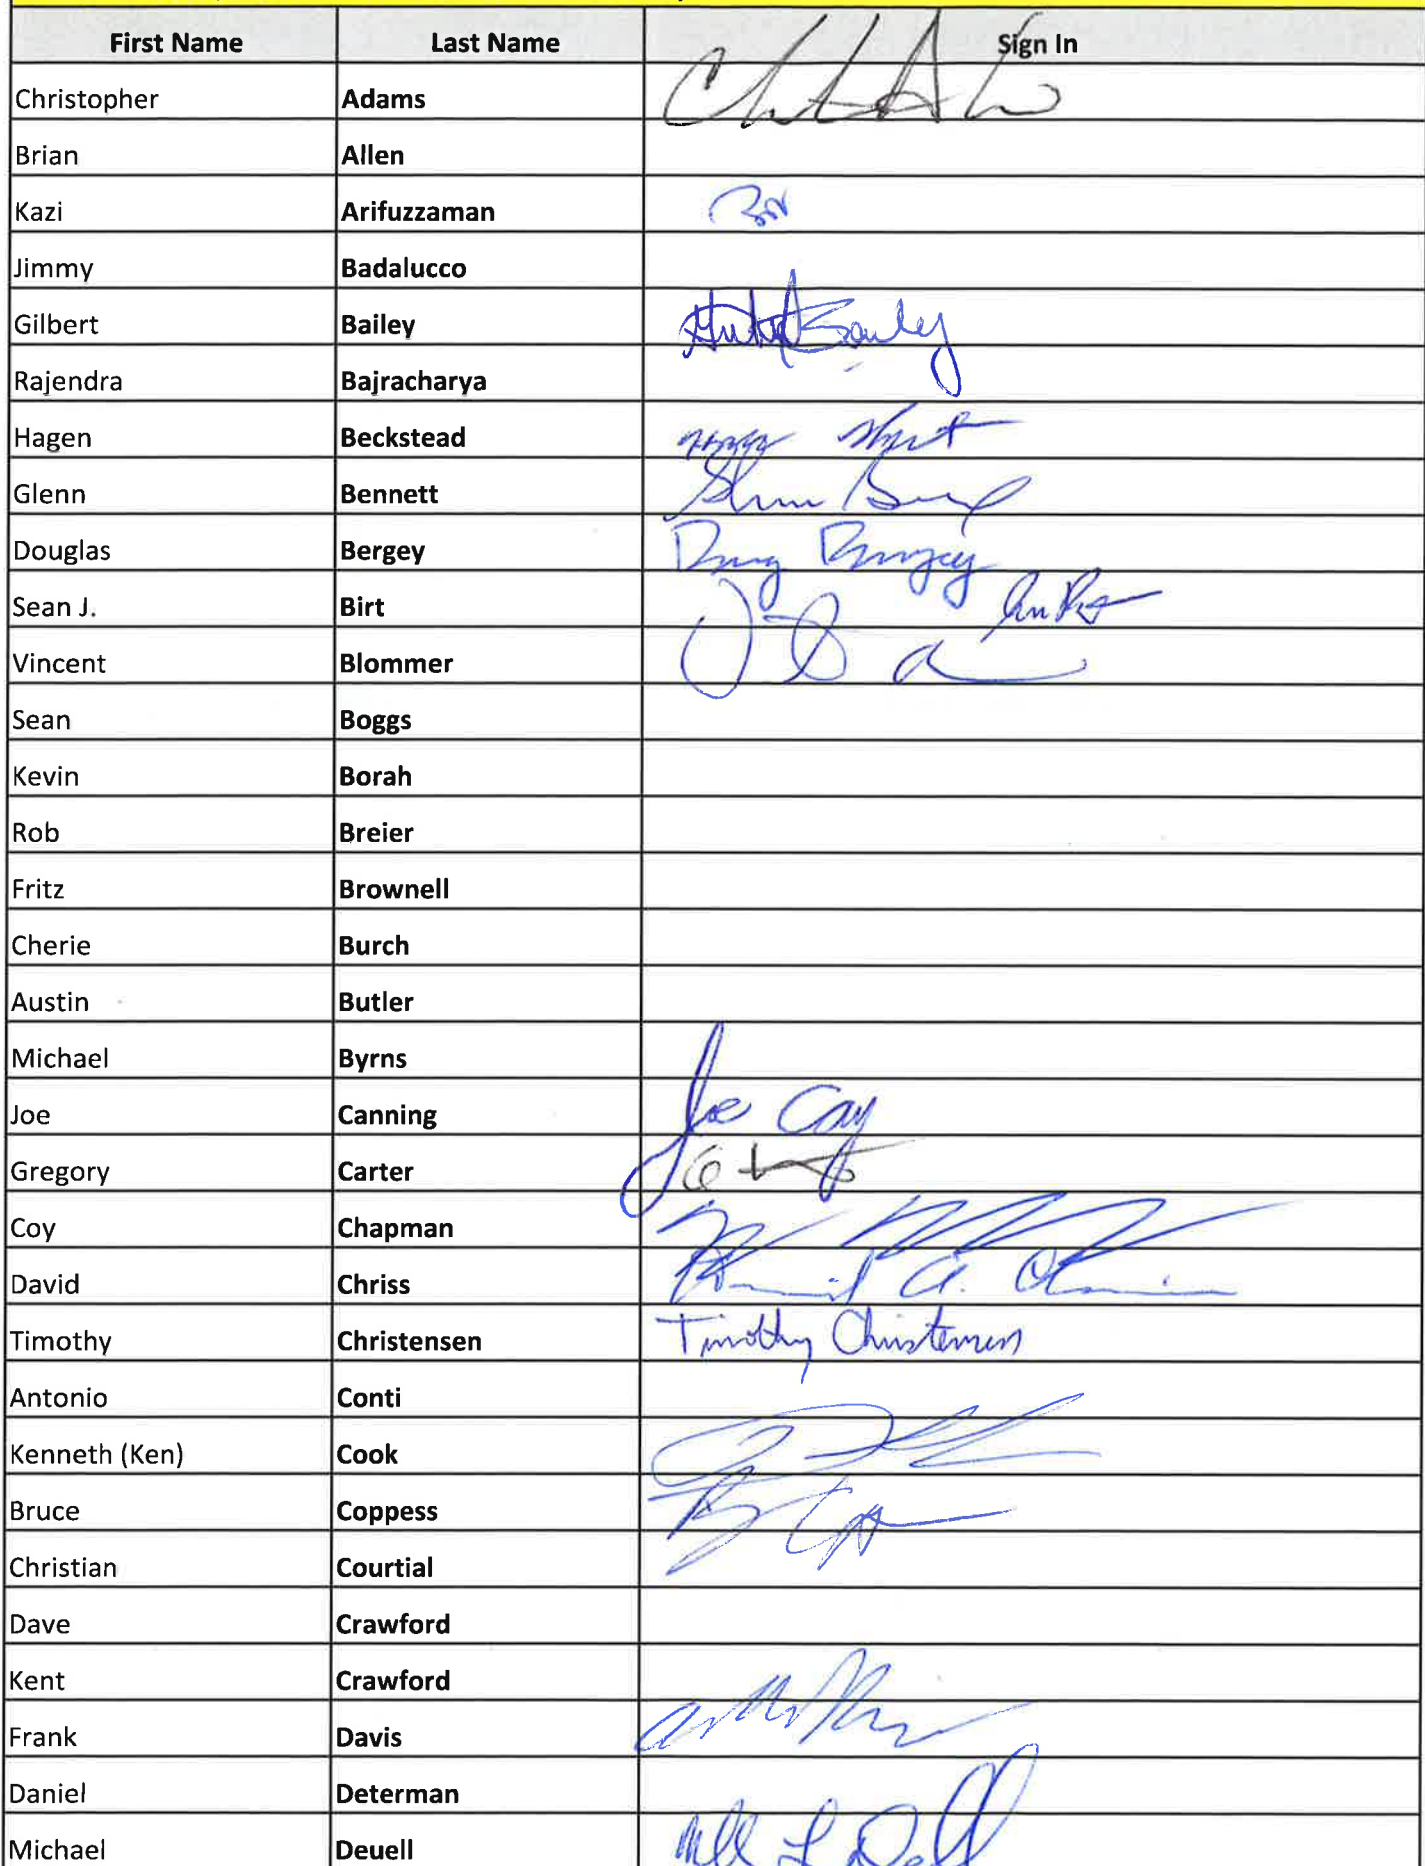 First Name Last Name Sign In
Christopher Adams
Brian Allen
Kazi Arifuzzaman
Jimmy Badalucco
Gilbert Bailey Bailey
Rajendra Bajracharya
Hagen Beckstead
Glenn Bennett
Douglas Bergey Doug Bergey
Sean J. Birt
Vincent Blommer
Sean Boggs
Kevin Borah
Rob Breier
Fritz Brownell
Cherie Burch
Austin Butler
Michael Byrns
Joe Canning Joe
Gregory Carter
Coy Chapman
David Chriss
Timothy Christensen Timothy Christensen
Antonio Conti
Kenneth (Ken) Cook
Bruce Coppess
Christian Courtial
Dave Crawford
Kent Crawford
Frank Davis
Daniel Determan
Michael Deuell